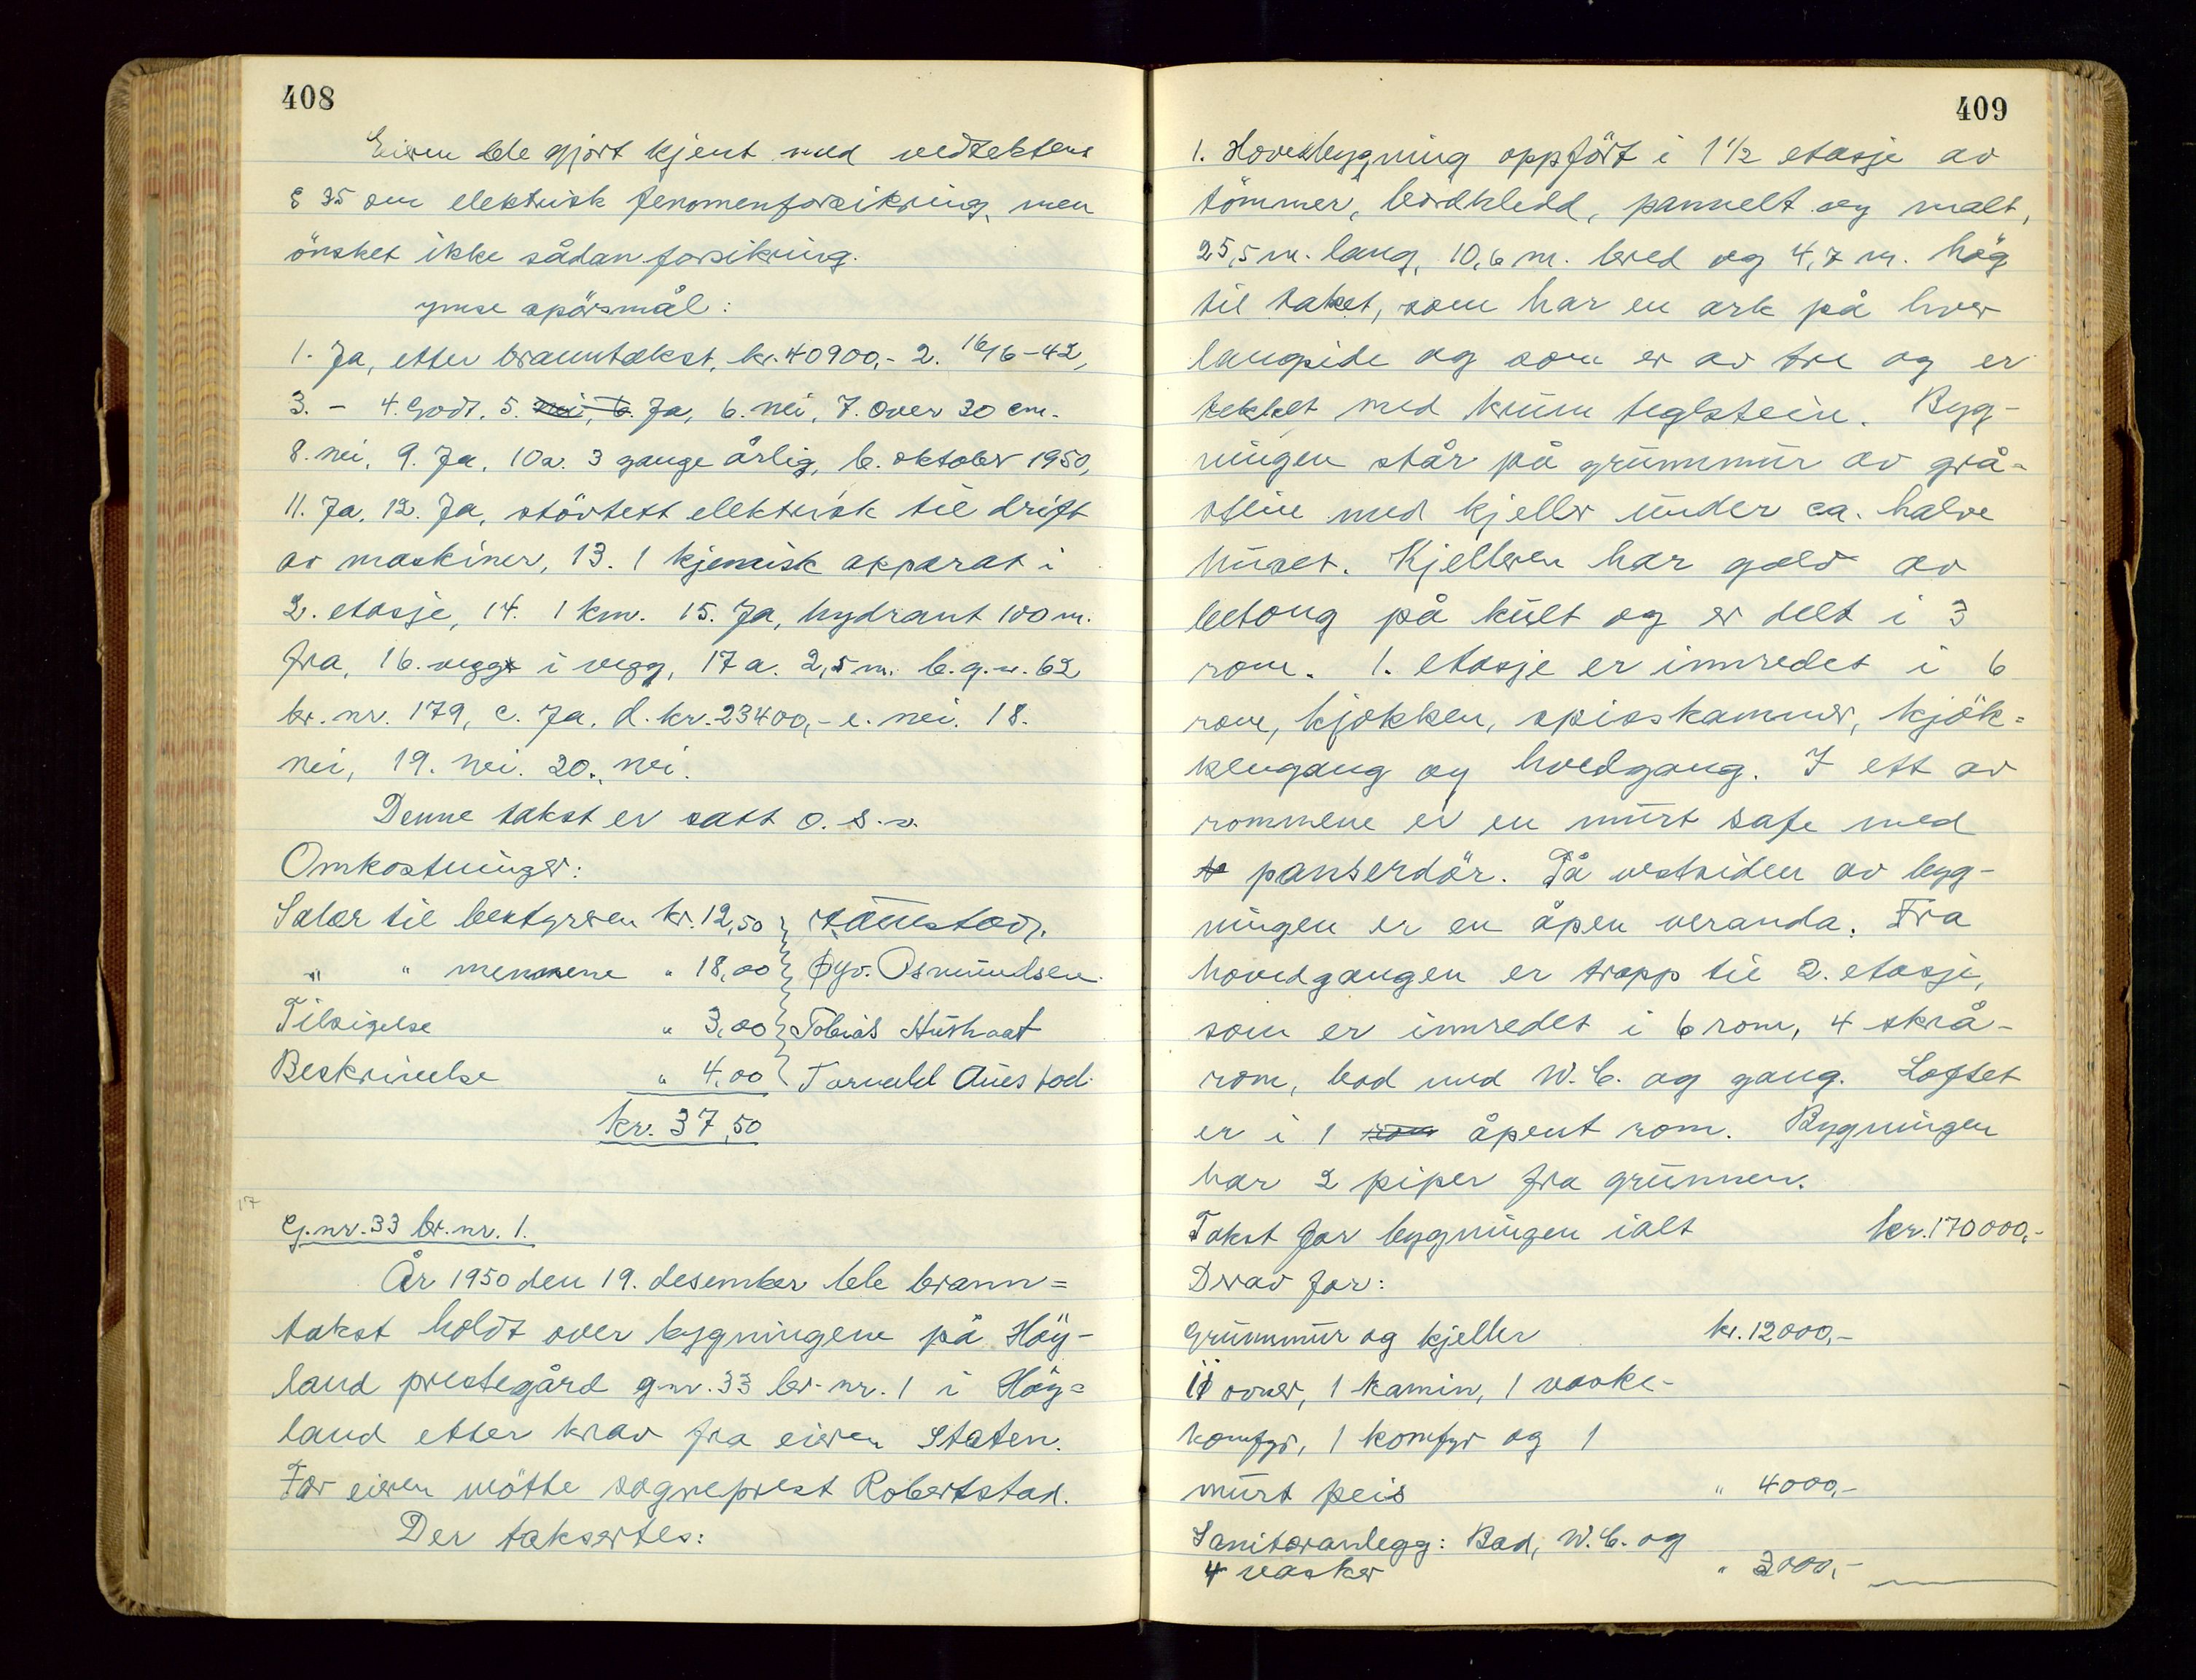 408
Eieren ble gjort kjent med vedtektens
§ 35 om elektrisk fenomenforsikring, men
önsket ikke sådan forsikring.
ymse spörsmål:
1. Ja, etter branntakst, kr. 40900,- 2. 16/6-42,
3. - 4. Godt. 5. nei, 6. Ja, 6. nei, 7. Over 30 cm.
8. nei, 9. Ja, 10a. 3 gange årlig, b. oktober 1950,
11. Ja, 12. Ja, störtest elektrisk til drift
av maskiner, 13. 1 kjemisk apparat i
2. etasje, 14. 1 km. 15. Ja, hydrant 100 m.
fra, 16. vegg i vegg, 17a. 2,5 m. b. g.nr. 62
br. nr. 179, c. Ja. d. kr. 23400,- e. nei. 18.
nei, 19. nei. 20. nei.
Denne takst er satt o. s. v.
Omkostninger:
Salær til bestyreren kr. 12,50
" " mennene " 18,00 Øyv. Osmundsen.
Tilsigelse " 3,00 Tobias
Beskrivelse " 4,00 Torvald Auestad.
kr. 37,50
17
G.nr. 33 br. nr. 1.
År 1950 den 19. desember ble brann=
takst holdt over bygningene på Höy-
land prestegård g.nr. 33 br. nr. 1 i Höy=
land etter krav fra eieren Staten.
For eieren mötte sogneprest Robertstad.
Der takseres:
409
1. Hovedbygning oppfört i 1 1/2 etasje av
tömmer, bordkledd, pannelt og malt,
25,5 m. lang, 10,6 m. bred og 4,7 m. hög
til taket, som har en ark på hver
langside og som er av tre og er
tekket med krum teglstein. Byg-
ningen står på grunnmur av grå-
stein med kjeller under ca. halve
huset. Kjelleren har golv av
betong på kult og er delt i 3
rom. 1. etasje er innredet i 6
rom, kjökken, spisskammer, kjök=
kengang og hovedgang. I ett av
rommene er en murt safe med
panserdör. På vestsiden av byg-
ningen er en åpen veranda. Fra
hovedgangen er trapp til 2. etasje,
som er innredet i 6 rom, 4 skrå-
rom, bad med W. C. og gang. Loftet
er i 1 rom åpent rom. Bygningen
har 2 piper fra grunnen.
Takst for bygningen ialt kr. 170000,-
Derav for:
Grunnmur og kjeller kr. 12000,-
11 ovner, 1 kamin, 1 vaske-
komfyr, 1 komfyr og 1
murt peis " 4000,-
Sanitæranlegg: Bad, W. C. og
4 vasker " 3000,-